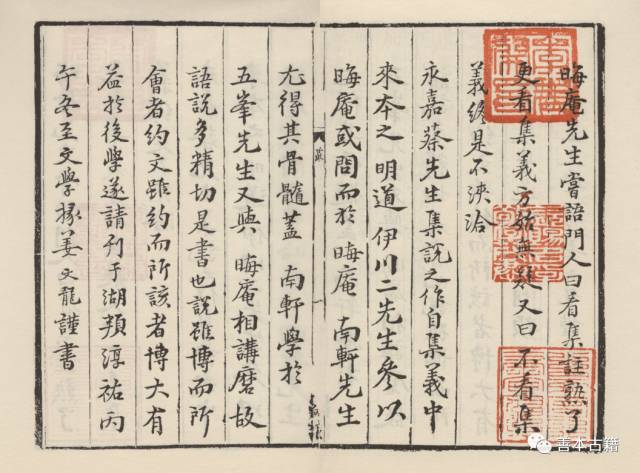 晦庵先生嘗語門人曰看集註熟了
更看集義方始無疑又曰不看集
義終是不浹洽
永嘉蔡先生集說之作自集義中
來本之明道伊川二先生參以
晦庵或問而於晦庵南軒先生
尤得其骨髓蓋南軒學於
五峯先生又與晦庵相講磨故
語說多精切是書也說雖博而所
會者約文雖約而所該者博大有
益於後學遂請刊于湖頖淳祐丙
午冬至文學掾姜文龍謹書
善本古籍